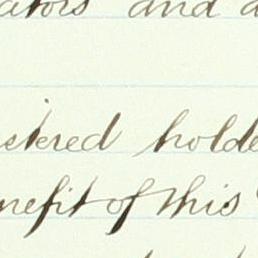 ators and a
stered holde
nefit of this